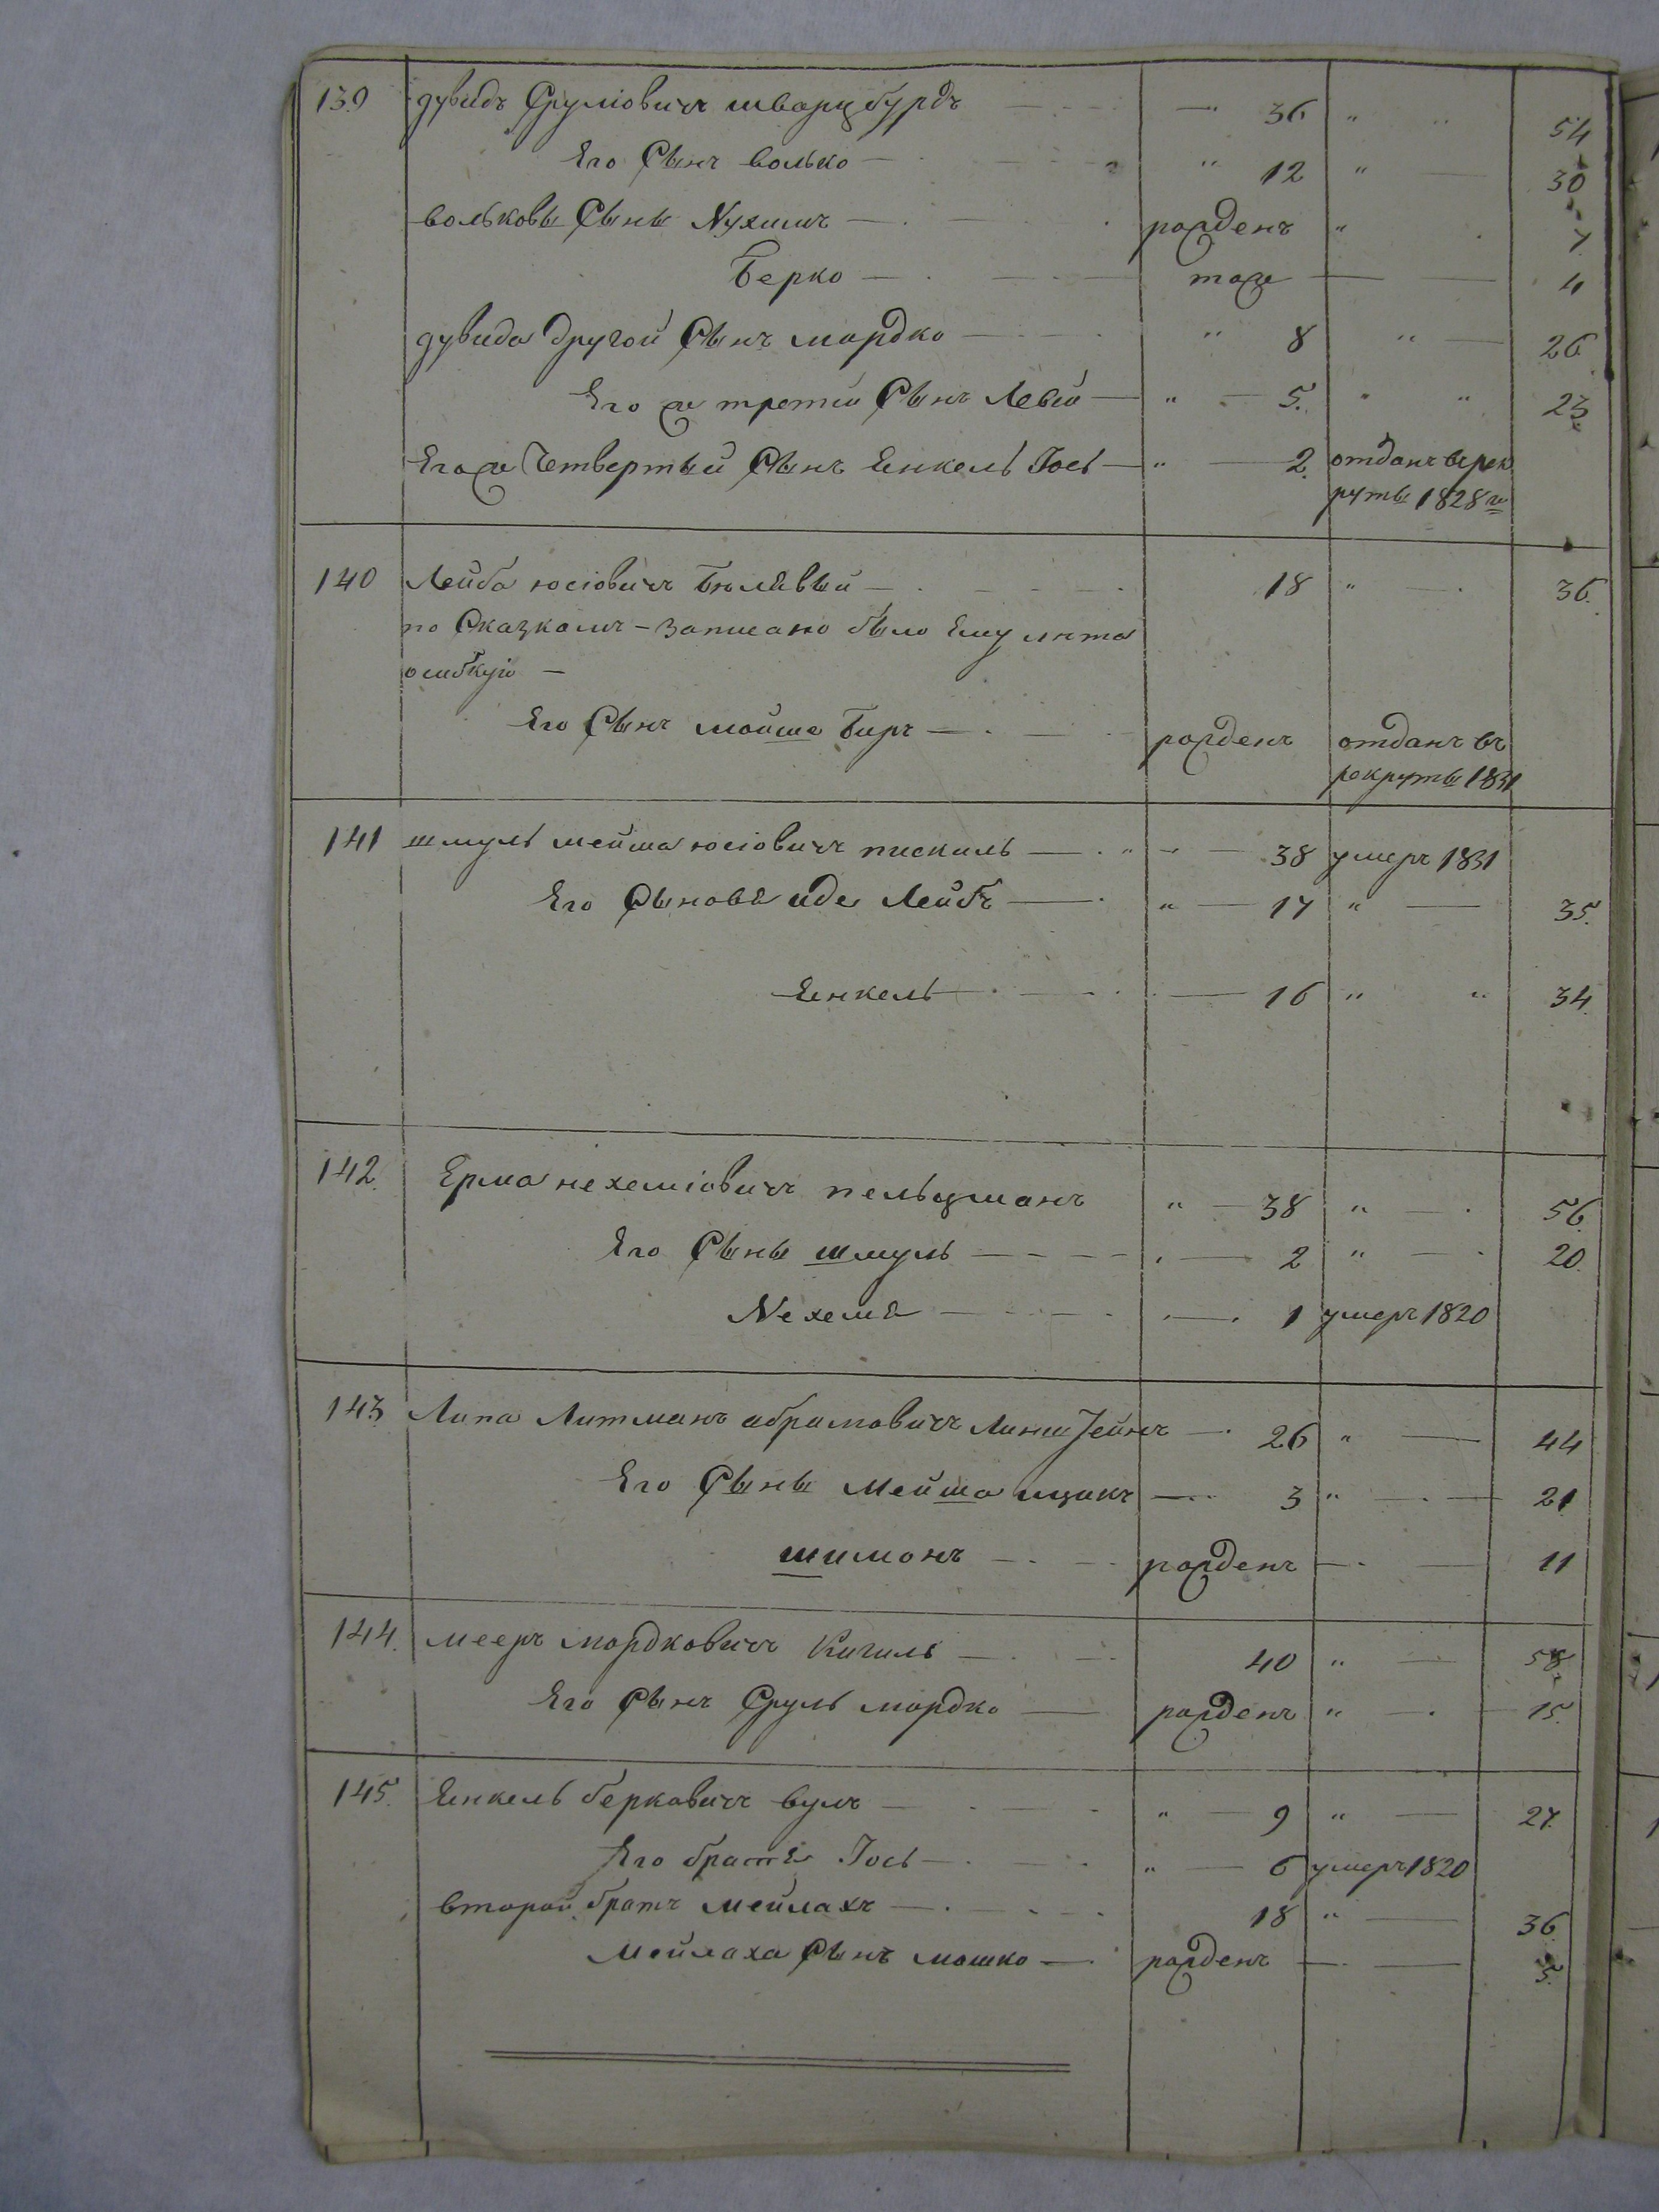 139 дувидъ Сруліовичъ шварцбурдъ — 36 " " 54
Его Сынъ волько — " 12 " — 30
вольковы Сыны Нухимъ — рожденъ " 7
Берко — тоже — 4
дувида другой Сынъ мордко — " 8 " — 26
Его же третий Сынъ Левій — " — 5. " " 23
Его же Четвертый Сынъ Янкель Іось — " — 2. отданъ врек
руты 1828 го
140 Лейба юсіовичъ Билявый — 18 " — 36.
по Сказкамъ – записано было Ему лѣта
ошибкую —
Его Сынъ мойше Биръ — рожденъ отданъ въ
рекруты 1831
141 шмуль мейша юсіовичъ пискиль — " — 38 умеръ 1831
Его Сыновя иде Лейбъ — " — 17 " — 35.
Янкель — 16 " " 34.
142. Ерма нехеміовичъ пельцманъ " — 38 " — 56.
Его Сыны шмуль — 2 " — 20.
Нехемя — 1 умеръ 1820
143 Липа Литманъ абрамовичъ Линштейнъ — 26 " — 44
Его Сыны Мейша ицикъ — 3 " — 21
шимонъ — рожденъ — 11
144. мееръ мордковичъ Кигиль — 40 " — 58
Его Сынъ Сруль мордко — рожденъ " — 15.
145. Янкель берковичъ вулъ — " — 9 " — 27.
Его братя Іось — " — 6 умеръ 1820
второй братъ мейлахъ — 18 " — 36.
Мейлаха Сынъ мошко — рожденъ — 5.